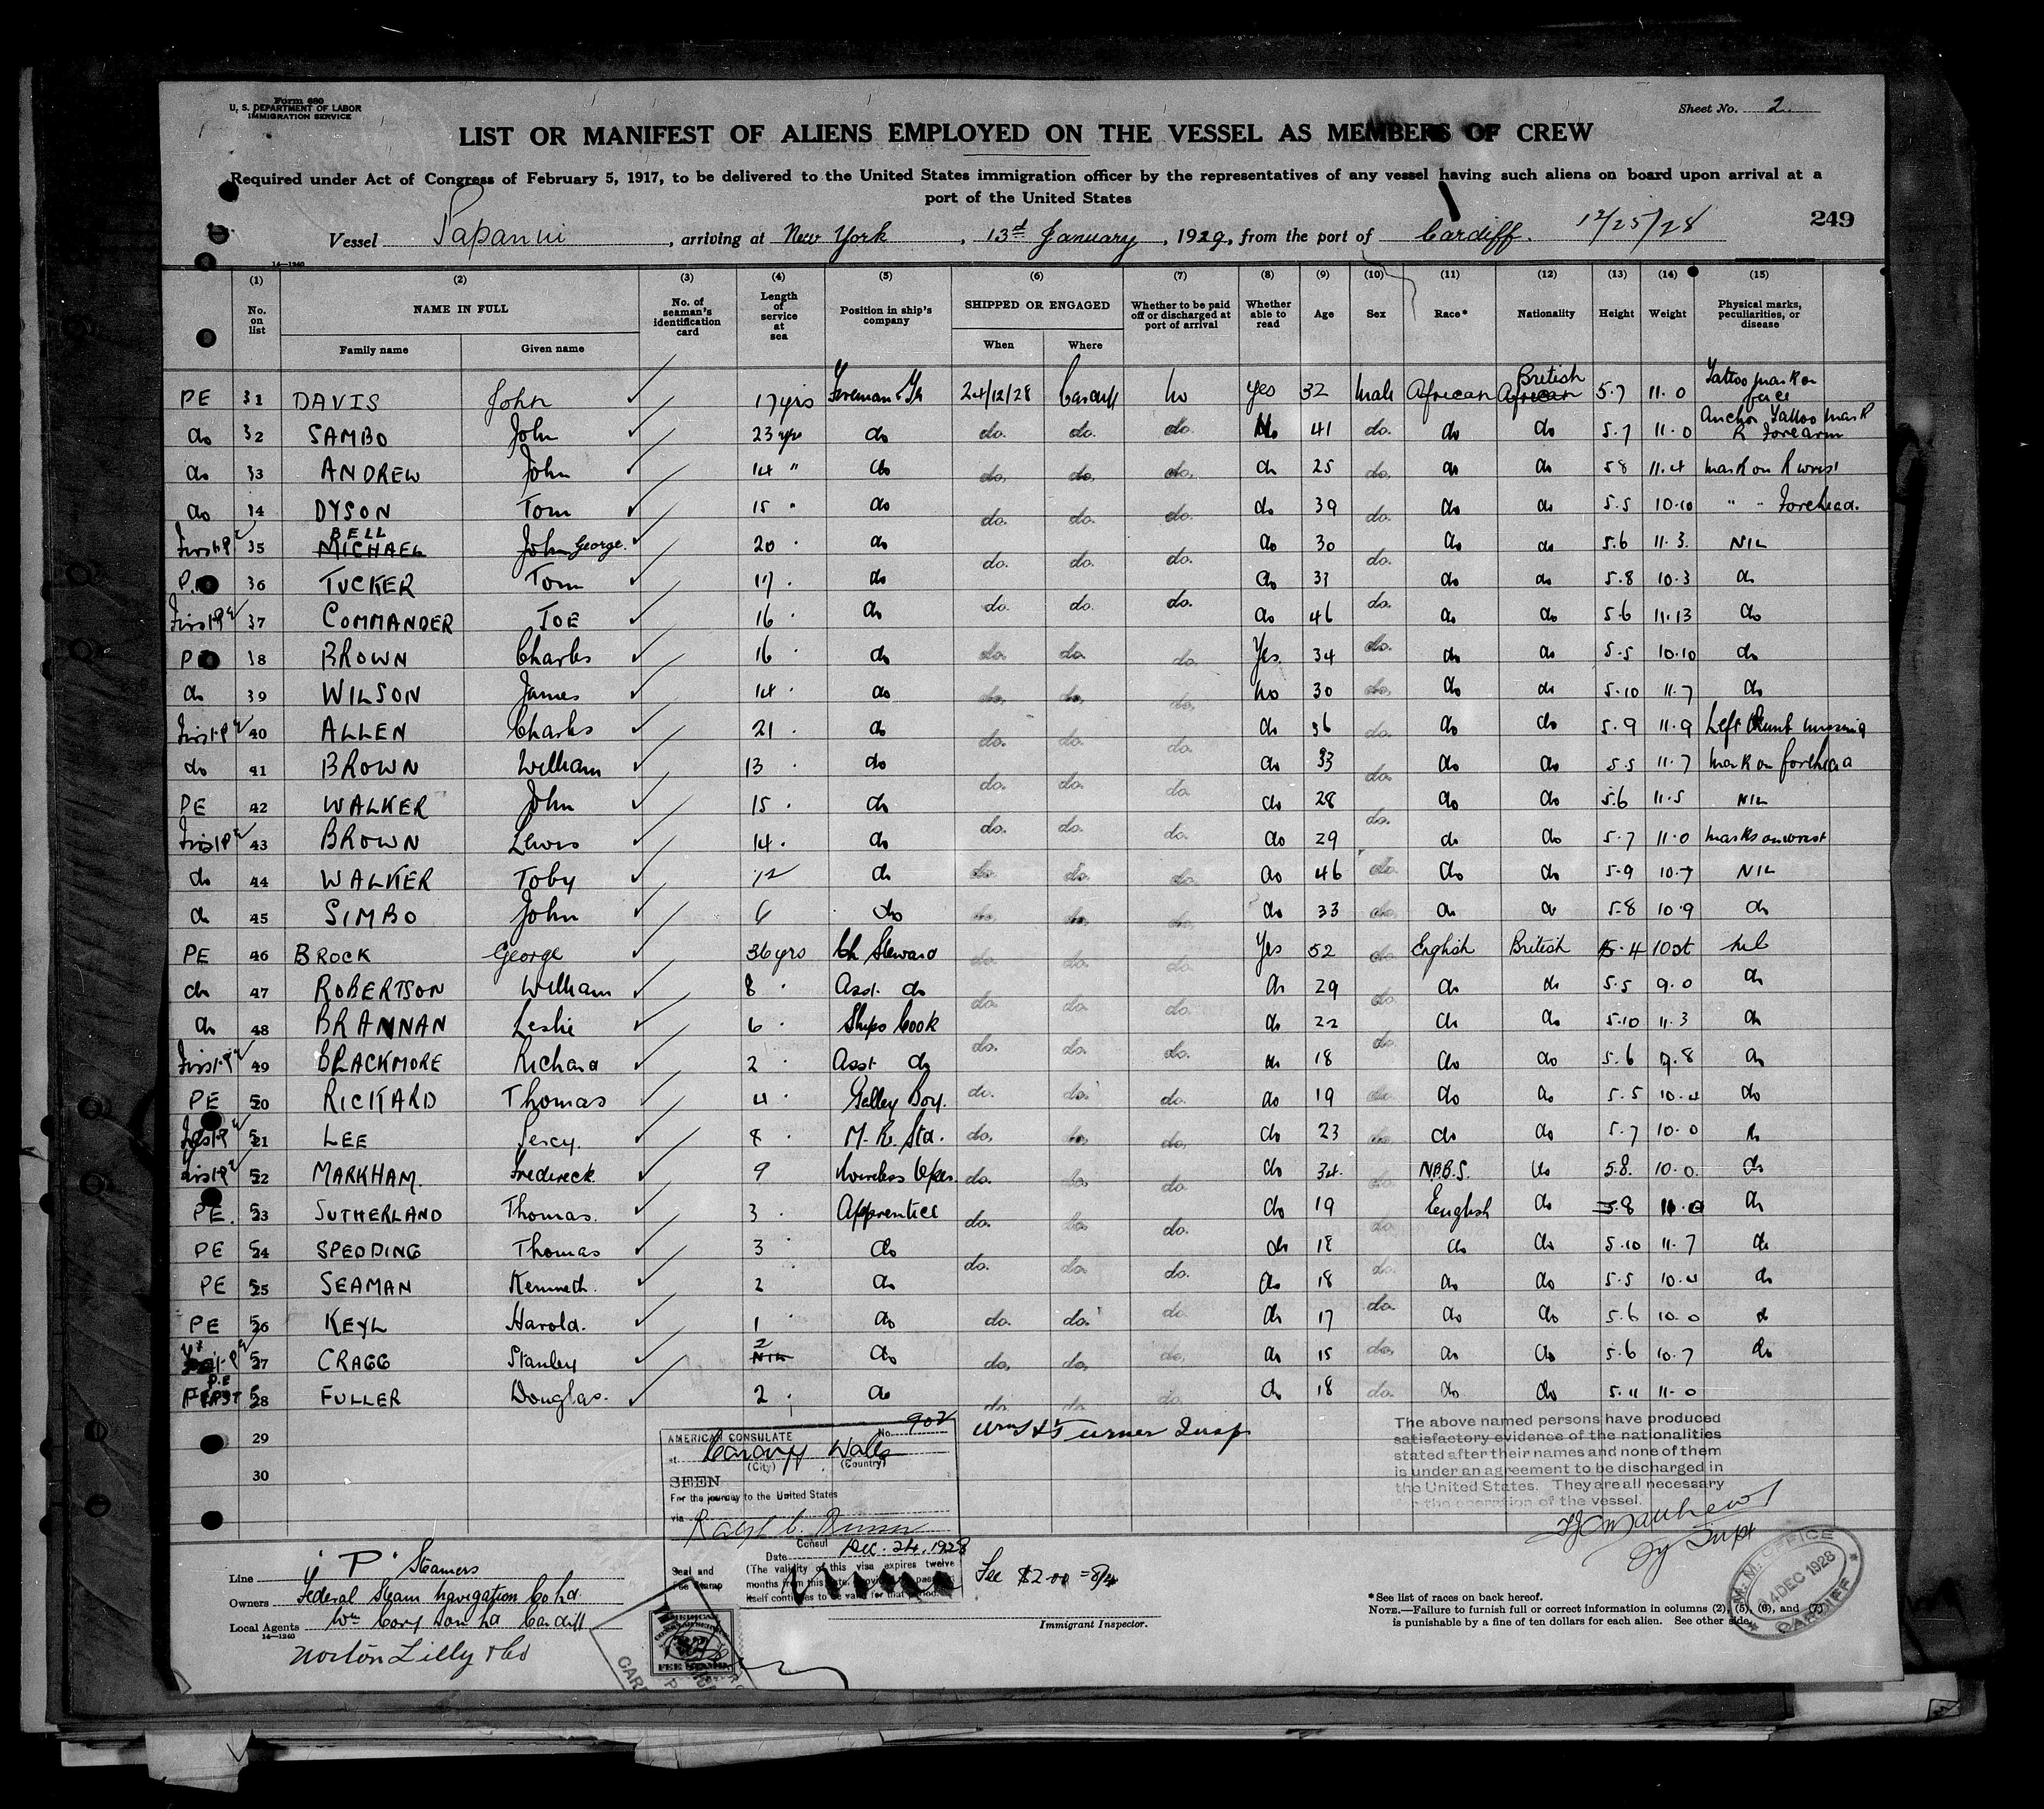 Form 680
U. S. DEPARTMENT OF LABOR
IMMIGRATION SERVICE
Sheet No. 2.
LIST OR MANIFEST OF ALIENS EMPLOYED ON THE VESSEL AS MEMBERS OF CREW
Required under Act of Congress of February 5, 1917, to be delivered to the United States immigration officer by the representatives of any vessel having such aliens on board upon arrival at a
port of the United States
249
Vessel Papanui, arriving at New York, 13th January, 1929, from the port of Cardiff. 12/25/28
14—1240
(1) (2) (3) (4) (5) (6) (7) (8) (9) (10) (11) (12) (13) (14) (15)
No. on list NAME IN FULL No. of seaman's identification card Length of service at sea Position in ship's company SHIPPED OR ENGAGED Whether to be paid off or discharged at port of arrival Whether able to read Age Sex Race* Nationality Height Weight Physical marks, peculiarities, or disease
Family name Given name When Where
PE 31 DAVIS John 17 yrs Fireman & Tr 24/12/28 Cardiff No Yes 32 Male African British African 5.7 11.0 Tattoo mark on face
do 32 SAMBO John 23 yrs do do. do. do. No 41 do. do do 5.7 11.0 Anchor Tattoo mark R Forearm
do 33 ANDREW John 14 " do do. do. do. do 25 do. do do 5.8 11.4 mark on R wrist
do 34 DYSON Tom 15 " do do. do. do. do 39 do. do do 5.5 10.10 " " Forehead.
First P 35 BELL MICHAEL John George. 20 " do do. do. do. do 30 do. do do 5.6 11.3. NIL
P. 36 TUCKER Tom 17 . do do. do. do. do 33 do. do do 5.8 10.3 do
First P 37 COMMANDER JOE 16 . do do. do. do. do 46 do. do do 5.6 11.13 do
P 38 BROWN Charles 16 . do do. do. do. Yes. 34 do. do do 5.5 10.10 do
do 39 WILSON James 14 . do do. do. do. No 30 do. do do 5.10 11.7 do
First P 40 ALLEN Charles 21 . do do. do. do. do 36 do. do do 5.9 11.9 Left thumb missing
do 41 BROWN William 13 . do do. do. do. do 33 do. do do 5.5 11.7 mark on forehead
PE 42 WALKER John 15 . do do. do. do. do 28 do. do do 5.6 11.5 NIL
First P 43 BROWN Lewis 14 . do do. do. do. do 29 do do 5.7 11.0 marks on wrist
do 44 WALKER Toby 12 do do. do. do. do 46 do. do do 5.9 10.7 NIL
do 45 SIMBO John 6 do do. do. do. do 33 do. do do 5.8 10.9 do
PE 46 BROCK George 36 yrs Ch Steward do. do. do. Yes 52 do. English British 5.4 10 st Nil
do 47 ROBERTSON William 8 . Asst. do do. do. do. do 29 do. do do 5.5 9.0 do
do 48 BRANNAN Leslie 6 . Ships Cook do. do. do. do 22 do. do do 5.10 11.3 do
First P 49 BLACKMORE Richard 2 . Asst do do. do. do. do 18 do do 5.6 9.8 do
PE 50 RICKARD Thomas 4 . Galley Boy. do. do. do. do 19 do. do do 5.5 10.4 do
First P 51 LEE Percy. 8 . M. R. Std. do. do. do. do 23 do. do do 5.7 10.0 do
First P 52 MARKHAM. Frederick. 9 Wireless Oper. do. do. do. do 34. do. do 5.8. 10.0. do
PE. 53 SUTHERLAND Thomas. 3 . Apprentice do. do. do. do 19 do. English do 5.8 11.0 do
PE 54 SPEDDING Thomas 3 . do do. do. do. do 18 do. do do 5.10 11.7 do
PE 55 SEAMAN Kenneth. 2 do do 18 do do 5.5 10.4 do
PE 56 KEYL Harold. 1 . do do. do. do. do 17 do. do do 5.6 10.0 do
57 CRAGG Stanley 2 Nil do do. do. do. do 15 do. do do 5.6 10.7 do
PE FIRST 58 FULLER Douglas. 2 . do do. do. do. do 18 do. do do 5.11 11.0
29
30
Wm H Turner Insp
AMERICAN CONSULATE No. 902
at Cardiff Wales
(City) (Country)
SEEN
For the journey to the United States
via
Consul
Date Dec. 24, 1928
(The validity of this visa expires twelve
months from this date, provided the passport
itself continues to be valid for that period.)
Seal and
Fee Stamp
Fee $2.00 = 8/4
AMERICAN
FEE STAMP
The above named persons have produced
satisfactory evidence of the nationalities
stated after their names and none of them
is under an agreement to be discharged in
the United States. They are all necessary
for the operation of the vessel.
Supt
M. M. OFFICE
24 DEC 1928
CARDIFF
Line "P" Steamers
Owners Federal Steam Navigation Co Ld
Local Agents Wm Cory Son Ld Cardiff
14—1240
Norton Lilly & Co
Immigrant Inspector.
*See list of races on back hereof.
NOTE.—Failure to furnish full or correct information in columns (2), (5), (6), and (7)
is punishable by a fine of ten dollars for each alien. See other side.